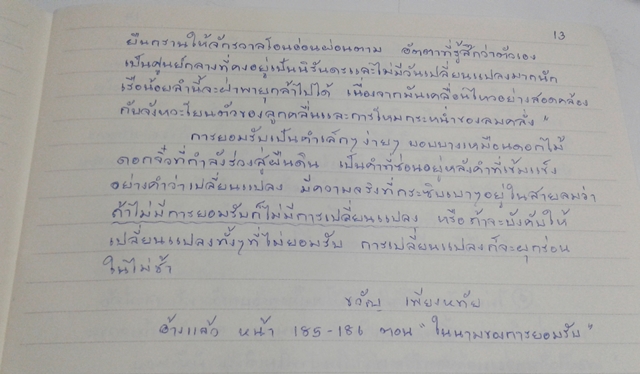 13
ยืนกรานให้จักรวาลโอนอ่อนผ่อนตาม อัตตาที่รู้สึกว่าตัวเอง
เป็นศูนย์กลางที่คงอยู่เป็นนิรันดรและไม่มีวันเปลี่ยนแปลงมากนัก
เรือน้อยลำนี้จะฝ่าพายุกล้าไปได้ เนื่องจากมันเคลื่อนไหวอย่างสอดคล้อง
กับจังหวะโยนตัวของลูกคลื่นและการโหมกระหน่ำของลมคลั่ง"
การยอมรับเป็นคำเล็กๆ ง่ายๆ บอบบางเหมือนดอกไม้
ดอกจิ๋วที่กำลังร่วงสู่ผืนดิน เป็นคำที่ซ่อนอยู่หลังคำที่เข้มแข็ง
อย่างคำว่าเปลี่ยนแปลง มีความจริงที่กระซิบเบาๆ อยู่ในสายลมว่า
ถ้าไม่มีการยอมรับก็ไม่มีการเปลี่ยนแปลง หรือถ้าจะบังคับให้
เปลี่ยนแปลงทั้งๆ ที่ไม่ยอมรับ การเปลี่ยนแปลงก็จะผุกร่อน
ในไม่ช้า
ขวัญ เพียงหทัย
อ้างแล้ว หน้า 185-186 ตอน "ในนามของการยอมรับ"